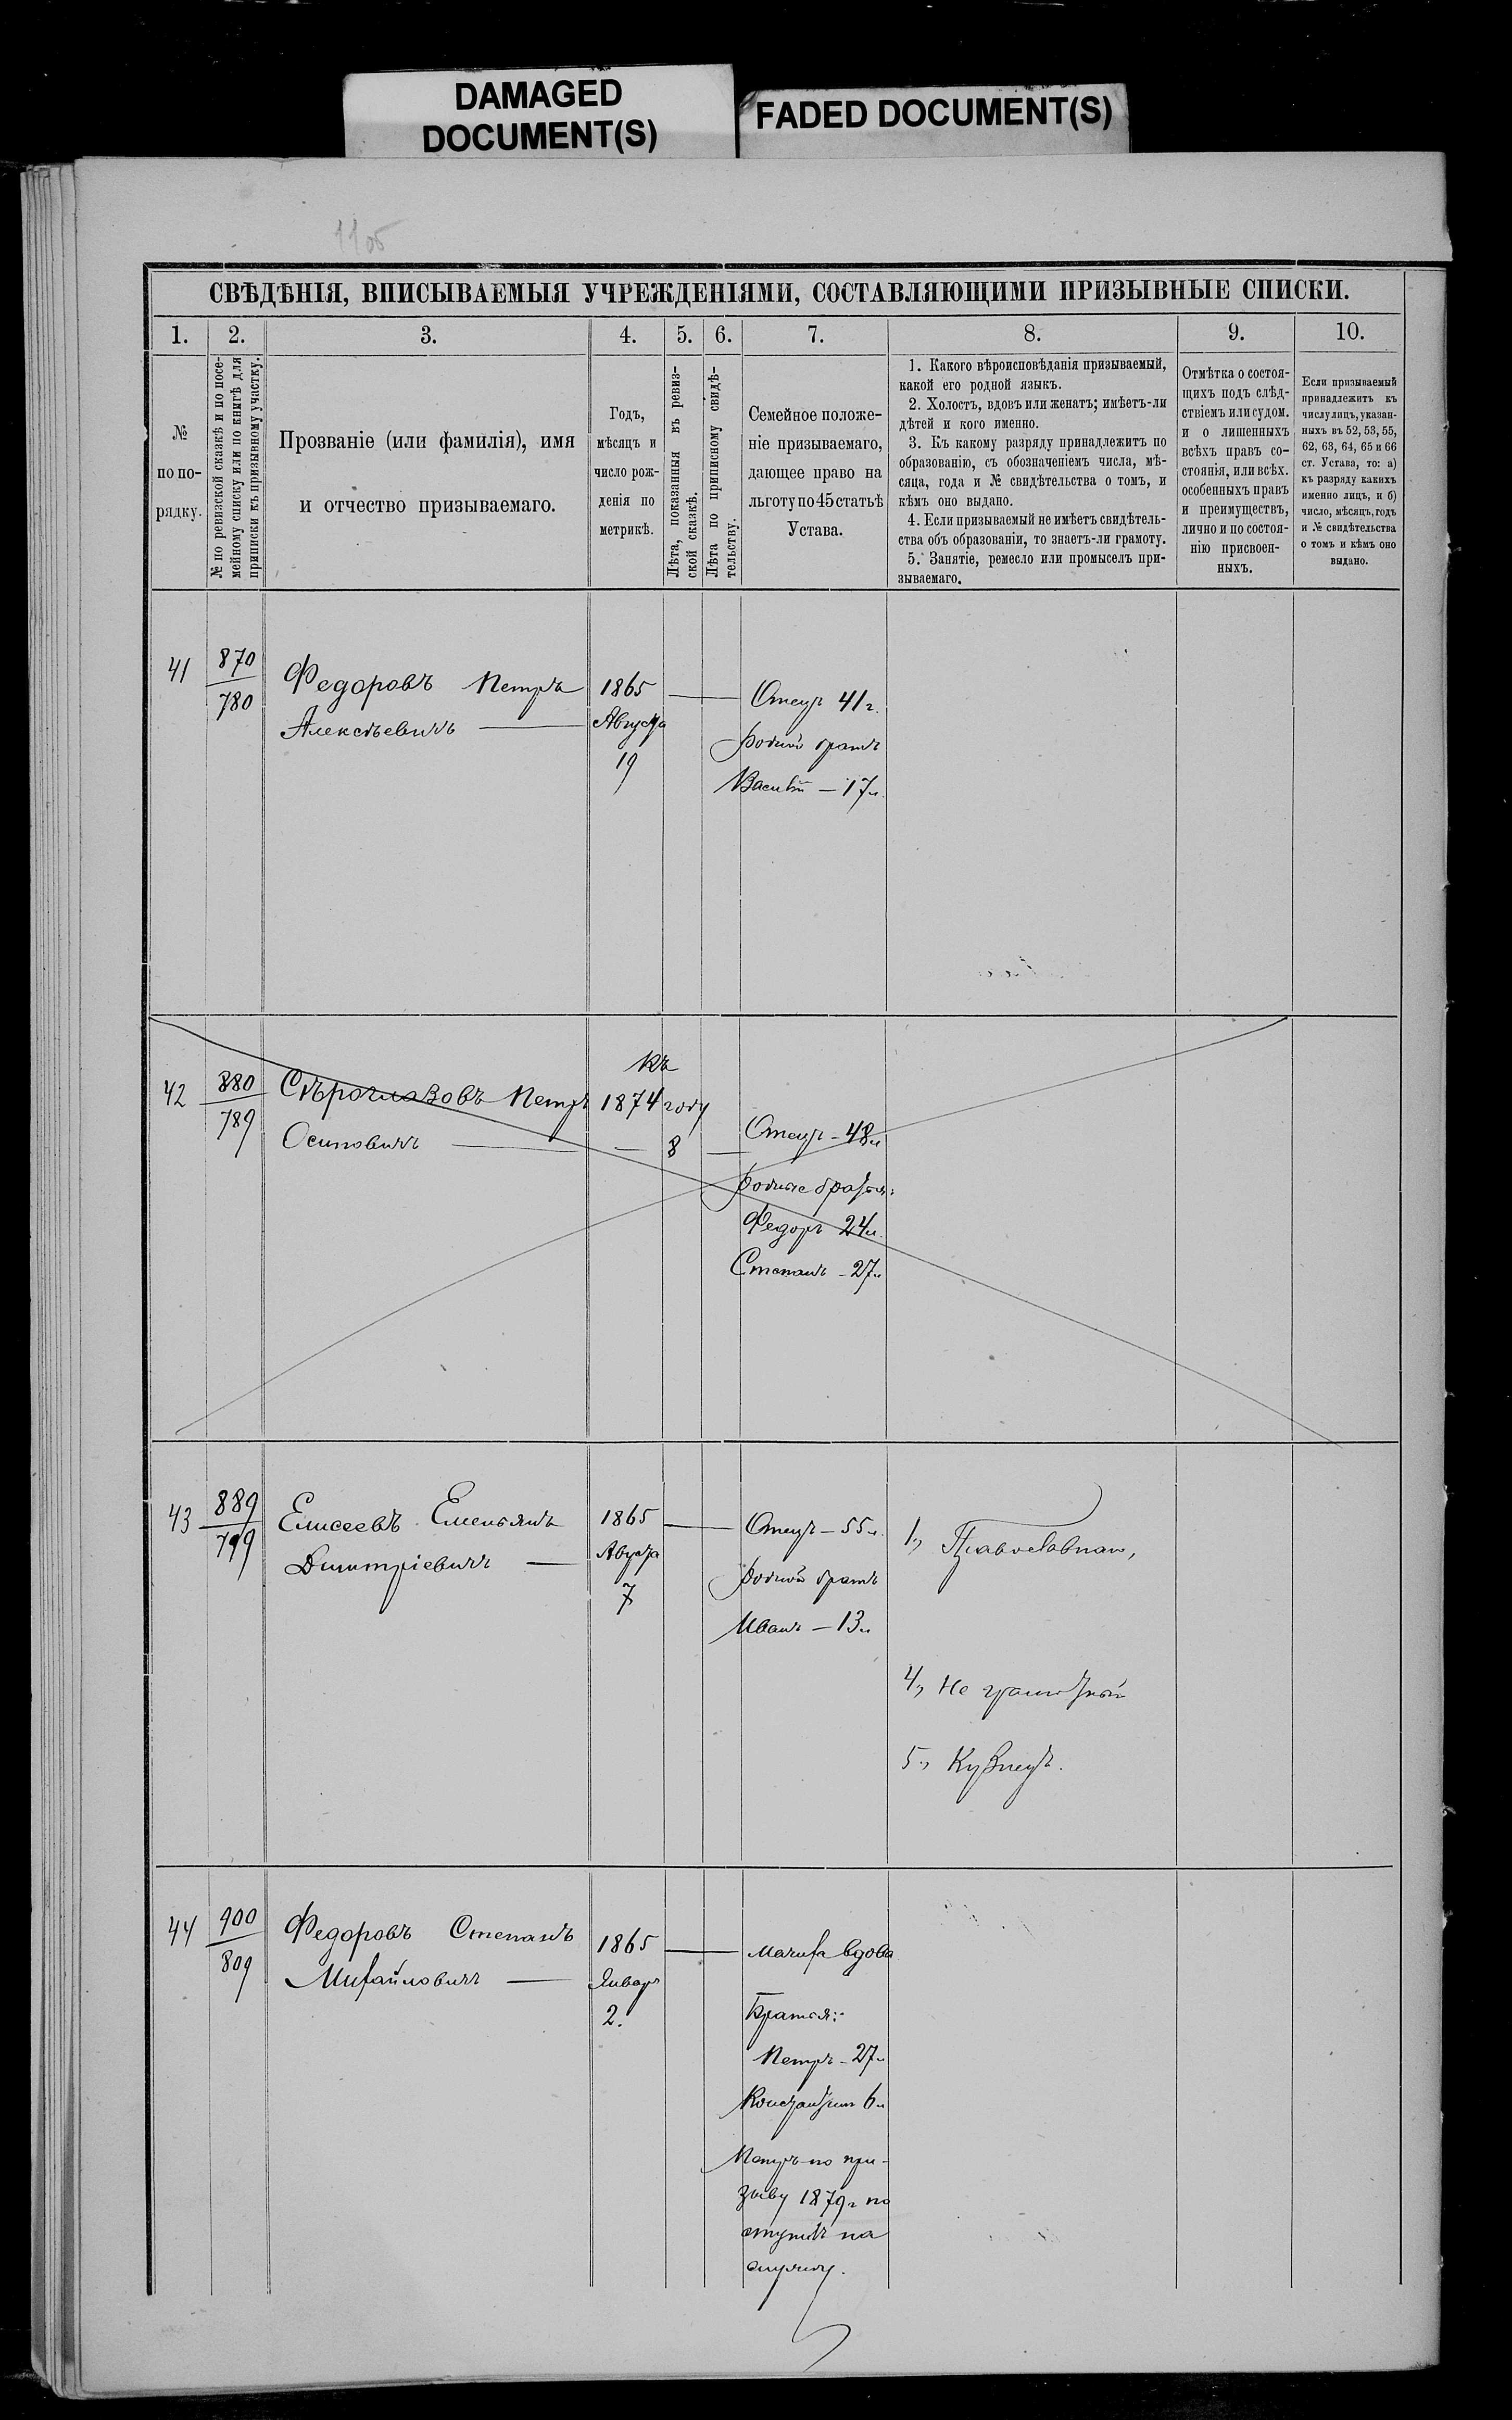 DAMAGED
DOCUMENT(S)
FADED DOCUMENT(S)
1105
СВѢДѢНІЯ, ВПИСЫВАЕМЫЯ УЧРЕЖДЕНІЯМИ, СОСТАВЛЯЮЩИМИ ПРИЗЫВНЫЕ СПИСКИ.
1. 2. 3. 4. 5. 6. 7. 8. 9. 10.
№
по по-
рядку.
№ по ревизской сказкѣ и по посе-
мейному списку или по книгѣ для
приписки къ призывному участку.
Прозваніе (или фамилія), имя
и отчество призываемаго.
Годъ,
мѣсяцъ и
число рож-
денія по
метрикѣ.
Лѣта, показанныя въ ревиз-
ской сказкѣ.
Лѣта по приписному свидѣ-
тельству.
Семейное положе-
ніе призываемаго,
дающее право на
льготу по 45 статьѣ
Устава.
1. Какого вѣроисповѣданія призываемый,
какой его родной языкъ.
2. Холостъ, вдовъ или женатъ; имѣетъ-ли
дѣтей и кого именно.
3. Къ какому разряду принадлежитъ по
образованію, съ обозначеніемъ числа, мѣ-
сяца, года и № свидѣтельства о томъ, и
кѣмъ оно выдано.
4. Если призываемый не имѣетъ свидѣтель-
ства объ образованіи, то знаетъ-ли грамоту.
5. Занятіе, ремесло или промыселъ при-
зываемаго.
Отмѣтка о состоя-
щихъ подъ слѣд-
ствіемъ или судом.
и о лишенныхъ
всѣхъ правъ со-
стоянія, или всѣх.
особенныхъ правъ
и преимуществъ,
лично и по состоя-
нію присвоен-
ныхъ.
Если призываемый
принадлежитъ къ
числу лицъ, указан-
ныхъ въ 52, 53, 55,
62, 63, 64, 65 и 66
ст. Устава, то: а)
къ разряду какихъ
именно лицъ, и б)
число, мѣсяцъ, годъ
и № свидѣтельства
о томъ и кѣмъ оно
выдано.
41
870
780
Федоровъ Петръ
Алексѣевичъ —
1865
Августа
19
Отецъ 41 г.
родной братъ
Василій — 17 л.
42
880
789
Сѣроглазовъ Петръ
Осиповичъ —
къ
1874 году
— 8 —
Отецъ - 48 л
родные братья:
Федоръ 24 л.
Степанъ - 27 л
43
889
799
Елисеевъ Емельянъ
Дмитріевичъ —
1865
Августа
7
Отецъ — 55 л.
родной братъ
Иванъ — 13 л
1, Православнаго,
4, Не грамотный
5, Кузнецъ.
44
900
809
Федоровъ Степанъ
Михайловичъ —
1865
Января
2.
Мачиха вдова
Братья:
Петръ - 27 л
Константинъ 6 л
Петръ по при-
зыву 1879 г по
ступилъ на
службу.